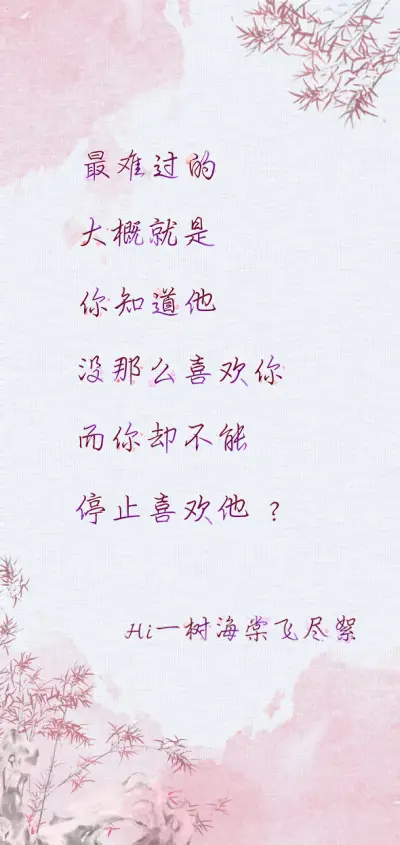 最难过的
大概就是
你知道他
没那么喜欢你
而你却不能
停止喜欢他？
Hi一树海棠飞尽絮